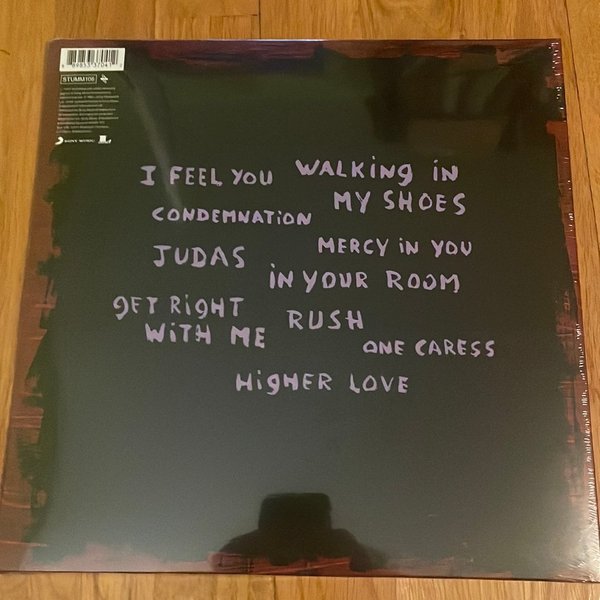 STUMM106
SONY MUSIC
I FEEL YOU
WALKiNg iN
MY SHOES
CONDEMNATiON
JUDAS
MERCY iN YOU
iN YOUR ROOM
gET RigHT
WiTH ME
RUSH
ONE CARESS
HigHER LOVE